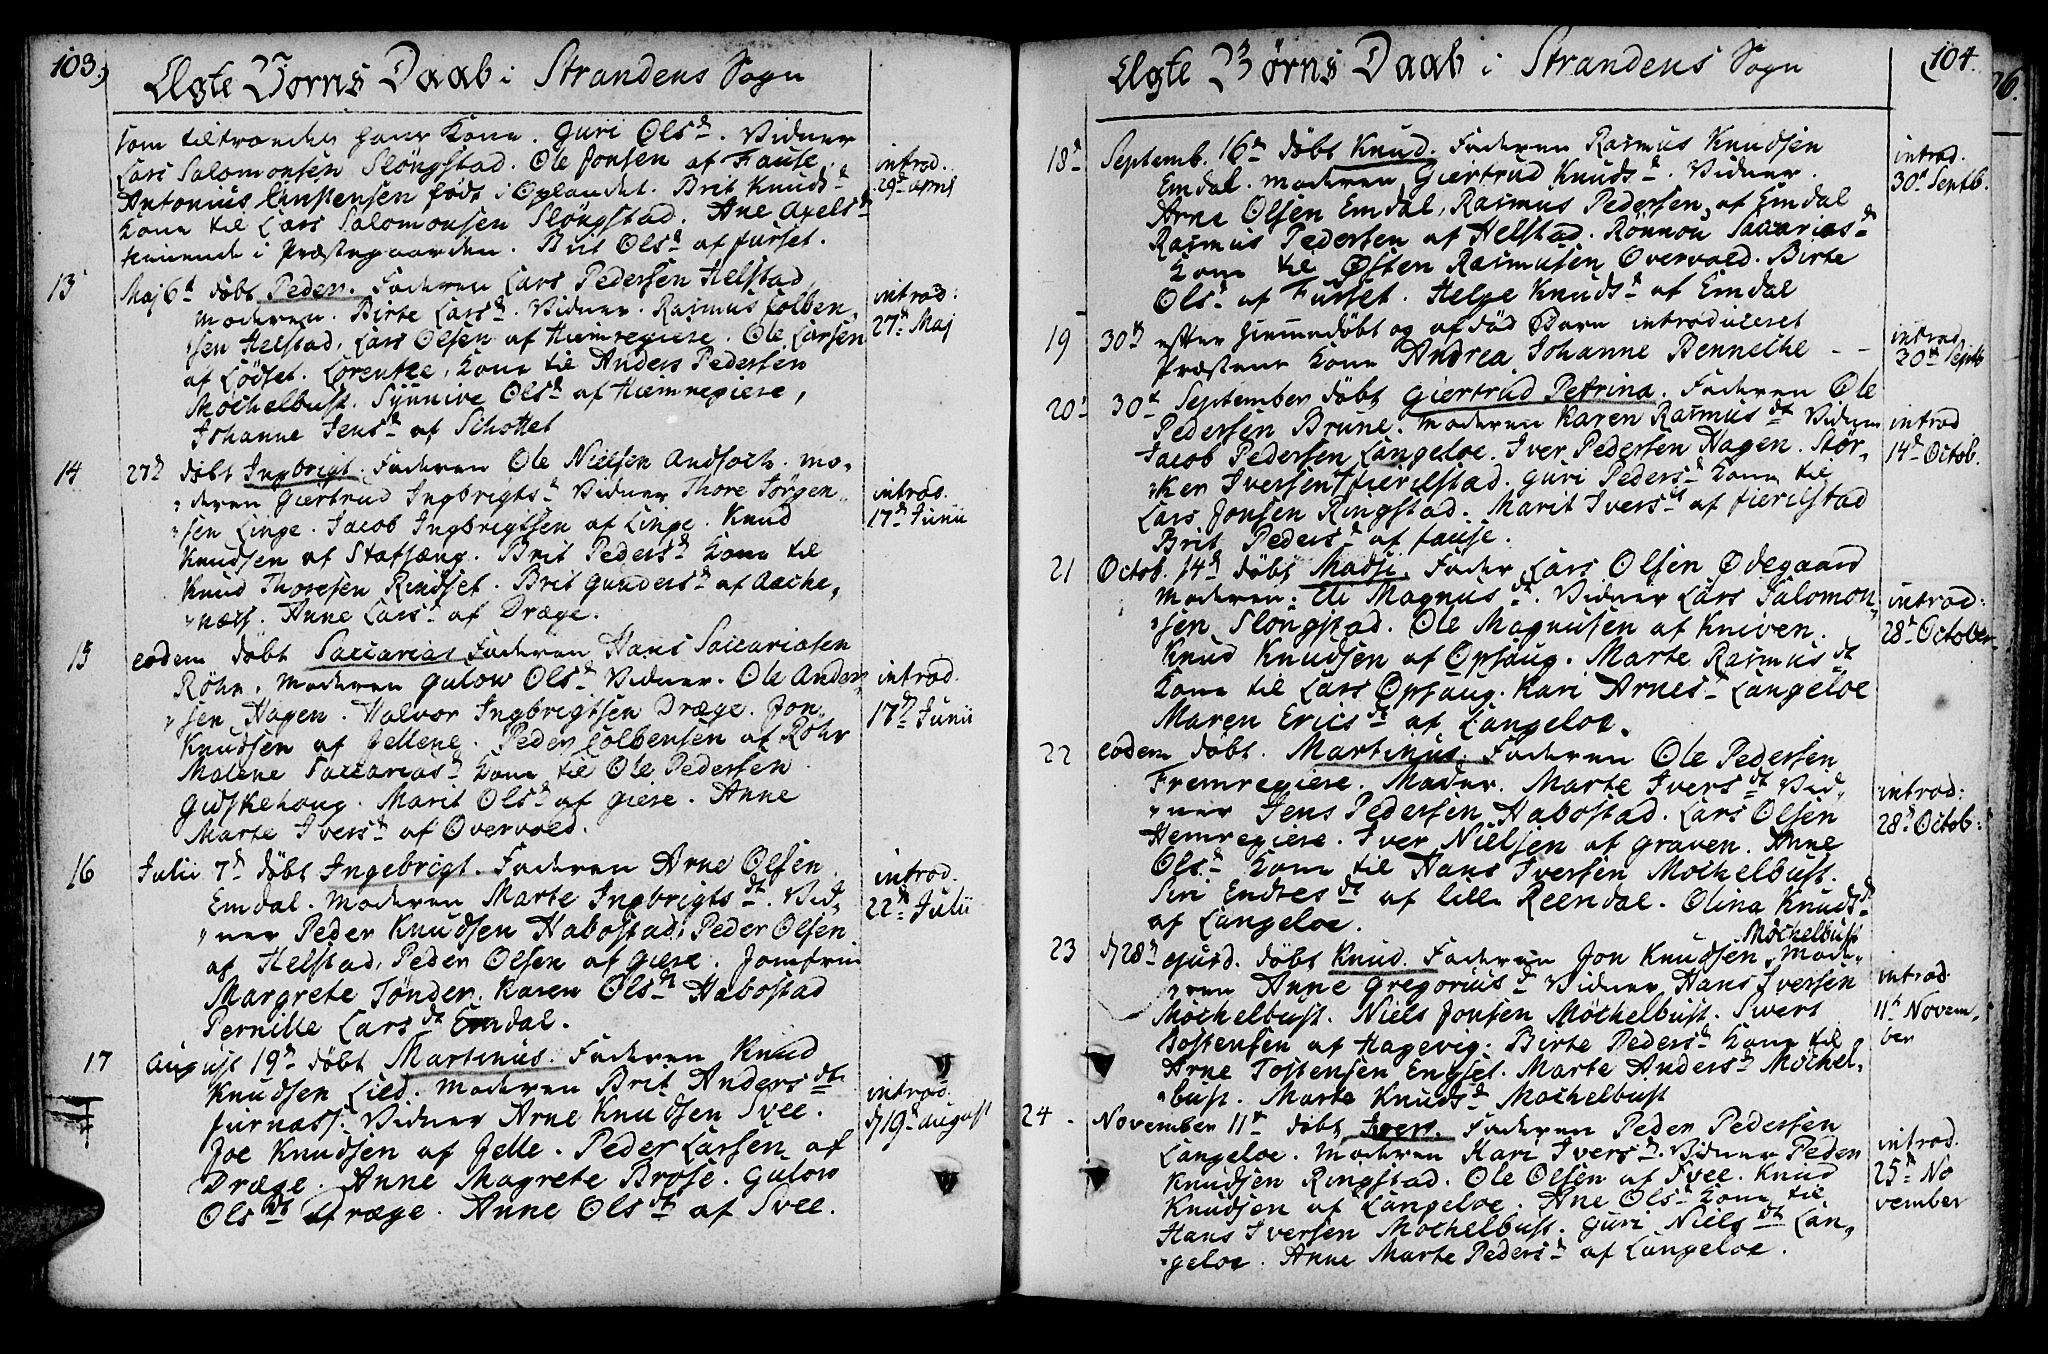 103.)
Ægte Børns Daab i Strandens Sogn
som tiltraadte hans Kone. Guri Olsd. Vidner
Lars Salomonsen Slöngstad. Ole Jonsen af Fause,
Antonius Christensen født i Oplandet. Brit Knudsd.
Kone til Lars Salomonsen Slöngstad. Ane Axelsd.
tienende i Præstegaarden. Brit Olsd. af furset.
introd.
29d april
13 Maj 6d døbt Peder. Faderen Lars Pedersen Helstad
Moderen. Birte Larsd. Vidner. Rasmus Colben,
sen Helstad, Lars Olsen af Hiemregiere. Ole Larsen
af Lödset. Lorentze, Kone til Anders Pedersen
Möchelbust. Synnive Olsd. af Hiemregiere,
Johanne Jensd. af Schottet
introd:
27d Maj
14 27d døbt Ingbrigt. Faderen Ole Nielsen Andsoch. mo,
deren Giertrud Ingbrigtsd. Vidner Thore Jörgen,
sen Linge. Jacob Ingbrigtsen af Linge. Knud
Knudsen af Stafsæng. Brit Pedersd. Kone til
Knud Thoresen Rindset. Brit Gundersd. af Aache,
næss. Anne Larsd. af Dræge.
introd.
17d Junii
15 eodem døbt Saccarias Faderen Hans Saccariasen
Röhr. Moderen Gulow Olsd. Vidner. Ole Anders,
sen Hagen. Halvor Ingbrigtsen Dræge. Jon
Knudsen af Jellene. Peder Colbensen af Röhr
Malene Saccariasd. Kone til Ole Pedersen
Gidskehaug. Marit Olsd. af Giere. Anne
Marte Iversd. af Overvold.
introd.
17d Junii
16 Julii 7d døbt Ingebrigt. Faderen Arne Olsen
Emdal. Moderen Marte Ingbrigtsdt. Vid,
ner Peder Knudsen Habostad, Peder Olsen
af Helstad, Peder Olsen af Giere. Jomfru
Margrete Tönder. Karen Olsdt Habostad
Pernille Larsdt Emdal.
introd.
22d Julii
17 August 19d døbt Martinus. Faderen Knud
Knudsen Lied. Moderen Brit Andersdt
furnæss. Vidner Arne Knudsen Svee.
Joe Knudsen af Jelle. Peder Larsen af
Dræge. Anne Magrete Brose. Gulow
Olsdt Dræge. Anne Olsdt af Svee.
introd.
d 19d august
104.
Ægte Børns Daab i Strandens Sogn
18d Septemb. 16d døbt Knud. Faderen Rasmus Knudsen
Emdal. Moderen Giertrud Knudsd. Vidner.
Arne Olsen Emdal, Rasmus Pedersen af Emdal
Rasmus Pedersen af Helstad. Rönnou Saccariasdt
Kone til Østen Rasmusen Overvold. Birte
Olsd. af Furset. Helge Knudsd. af Emdal
introd.
30d Septb.
19 30d efter hiemmedøbt og afdød Barn introduceret
Præstens Kone Andrea Johanne Bennelhe - -
introd.
30d Septb
20 30d September døbt Giertrud Petrina. Faderen Ole
Pedersen Brune. Moderen Karen Rasmusdt Vidner
Jacob Pedersen Langeloe. Iver Pedersen Hagen. Stör,
ker Iversen Fierilstad. Guri Pedersd. Kone til
Lars Jonsen Ringstad. Marit Iversdt af fierilstad
Brit Pedersd. af fause.
introd
14d Octob.
21 Octob. 14d døbt Madsi. Fader Lars Olsen Ødegaard
Moderen. Eli Magnusdt. Vidner Lars Salomon,
sen Slöngstad. Ole Magnusen af Kniven.
Knud Knudsen af Opsaug. Marte Rasmusdt
Kone til Lars Opsaug. Kari Arnesd Langeloe
Maren Ericsdt af Langeloe.
introd:
28d October
22 eodem døbt. Martinus. Faderen Ole Pedersen
Fremregiere. Mader. Marte Iversdt Vid,
ner Jens Pedersen Habostad. Lars Olsen
Hemregiere. Iver Nielsen af Graven. Anne
Olsd. Kone til Hans Iversen Möchelbust.
Siri Endresdt af lille Reendal. Olina Knudsdt
af Langeloe.
introd:
28d Octob:
23 d 28d ejusd. døbt Knud. Faderen Jon Knudsen Möchelbust Mode,
ren Anne Gregoriusd. Vidner Hans Iversen
Möchelbust. Niels Jonsen Möchelbust. Siver
Tostensen af Hagevig. Birte Pedersd. Kone til
Arne Tostensen Engset. Marte Andersd. Möchel,
bust. Marte Knudsd. Mochelbust
introd
11d Novem,
ber
24 November 11d døbt Iver. Faderen Peder Pedersen
Langeloe. Moderen Kari Iversd. Vidner Peder
Knudsen Ringstad. Ole Olsen af Svee. Knud
Knudsen af Langeloe. Ane Olsd. Kone til
Hans Iversen Möchelbust. Guri Nielsdt Lan,
geloe. Anne Marte Pedersd. af Langeloe.
introd.
25d No
vember